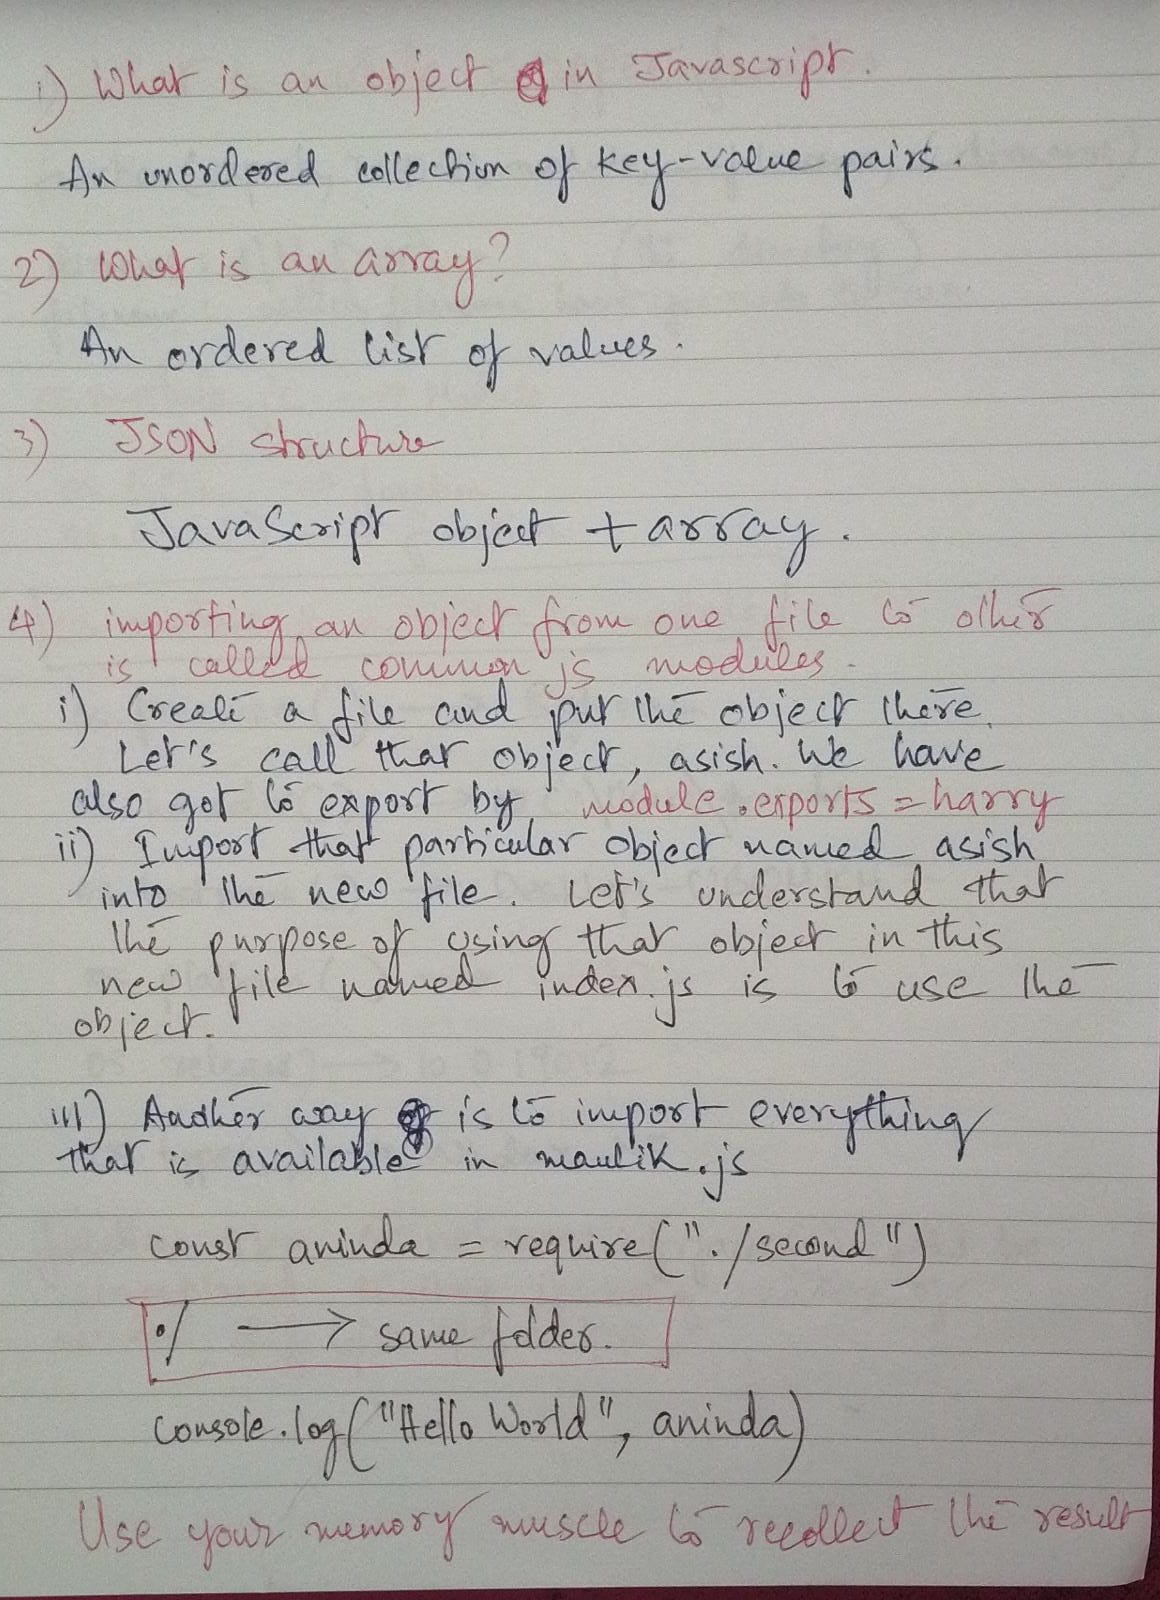 1) What is an object in Javascript.
An unordered collection of key-value pairs.
2) What is an array?
An ordered list of values.
3) JSON structure
JavaScript object + array.
4) importing an object from one file to other
is called common js modules.
i) Create a file and put the object there.
Let's call that object, asish. We have
also got to export by module.exports = harry
ii) Import that particular object named asish
into the new file. Let's understand that
the purpose of using that object in this
new file named index.js is to use the
object.
iii) Another way is to import everything
that is available in maulik.js
const aninda = require("./second")
./ → same folder.
console.log("Hello World", aninda)
Use your memory muscle to recollect the result